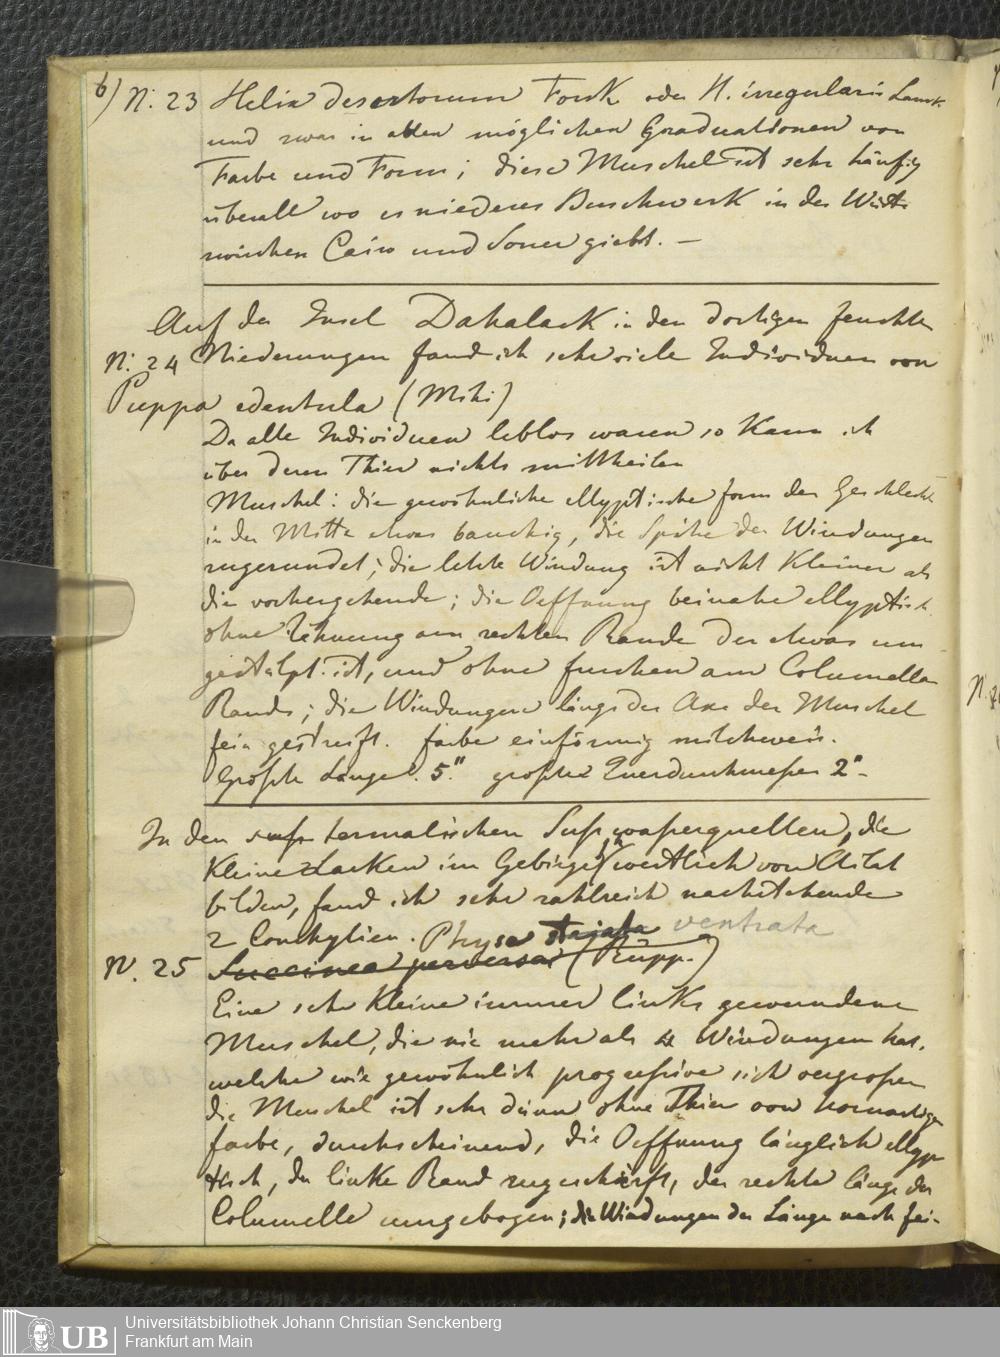 6) N. 23 Helix desertorum Forsk oder H. irregularis Lamk
und zwar in allen möglichen Graduationen von
Farbe und Form; diese Muschel ist sehr häufig
überall wo es niederes Buschwerk in der Wüste
zwischen Cairo und Souer giebt. —
Auf der Insel Dahalack in den dortigen feuchten
N. 24 Niederungen fand ich sehr viele Individuen von
Puppa edentula (Mihi)
Da alle Individuen leblos waren so kann ich
über deren Thier nichts mittheilen
Muschel: die gewöhnliche ellyptische form des Geschlechts
in der Mitte etwas bauchig, die Spitze der Windungen
zugerundet; die letzte Windung ist nicht kleiner als
die vorhergehende; die Oeffnung beinahe ellyptisch
ohne Zähnung am rechten Rande der etwas um
gestülpt ist, und ohne furchen am Columellar
Rande; die Windungen längs der Axe der Muschel
fein gestreift. farbe einförmig milchweis.
Größte Länge 5.''' größter Querdurchmeßer 2'''
In den termalischen Süßwaßerquellen, die
kleine Lacken im Gebirge westlich von Ailat
bilden, fand ich sehr zahlreich nachstehende
2 Conchylien. Physa striata ventrata
N. 25 Succinea perversa (Rüpp.)
Eine sehr kleine immer links gewundene
Muschel, die nie mehr als 4 Windungen hat,
welche wie gewöhnlich progressive sich vergroßern
die Muschel ist sehr dünn ohne Thier von hornartiger
farbe, durchscheinend, die Oeffnung länglich ellyp
tisch, der linke Rand zugeschärft, der rechte längs der
Columelle umgebogen; die Windungen der Länge nach fei-
UB Universitätsbibliothek Johann Christian Senckenberg
Frankfurt am Main